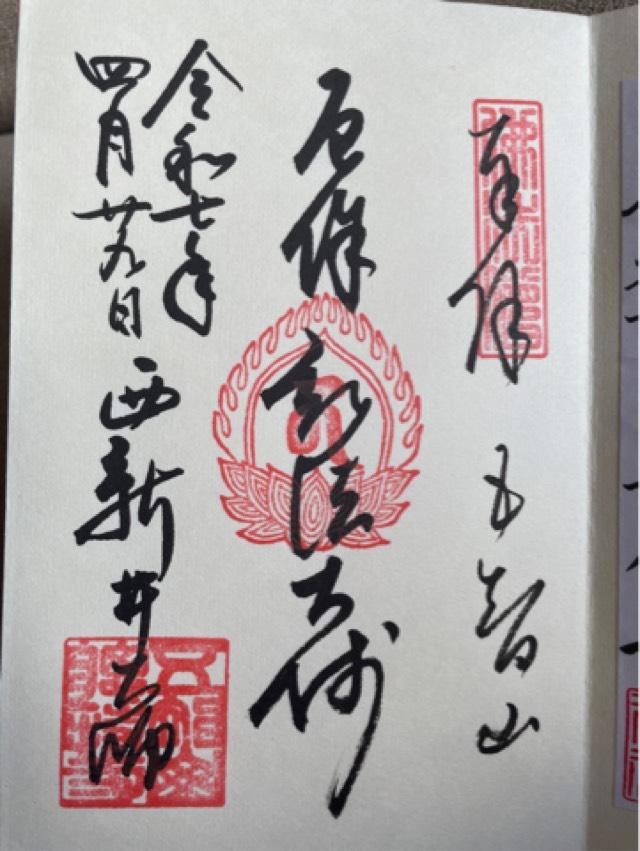 奉拝 五智山
厄除 弘法大師
令和七年
四月廿九日
西新井大師